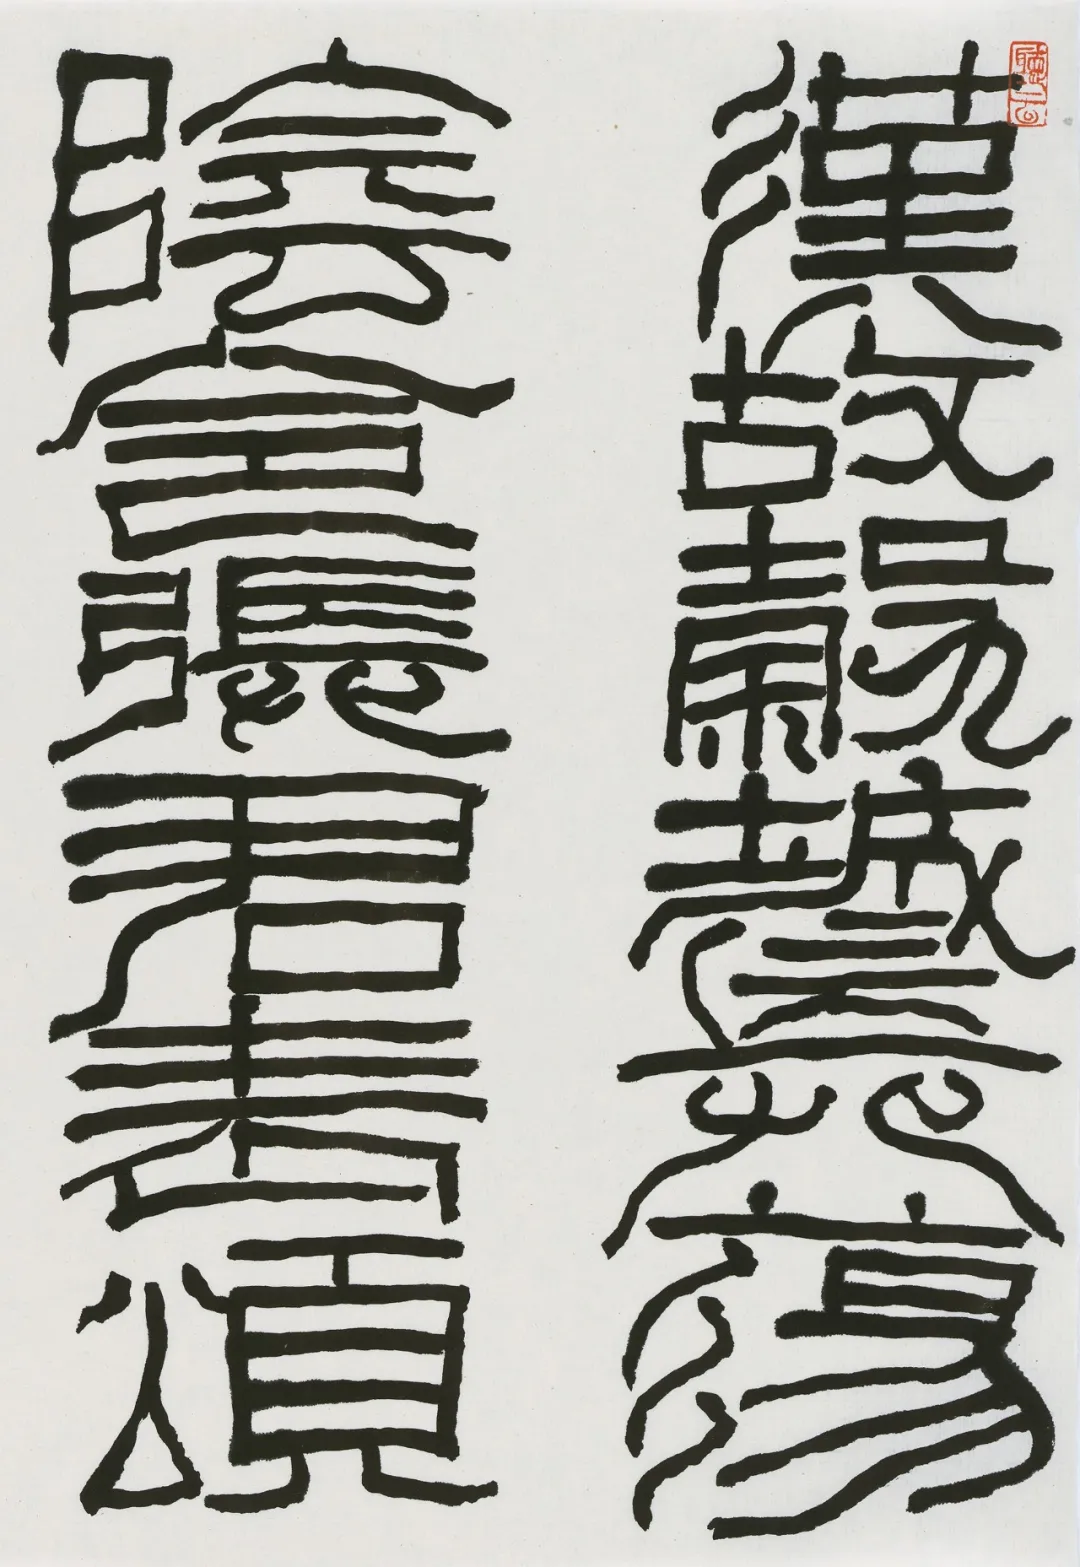 漢故穀城長蕩
陰令張君表頌